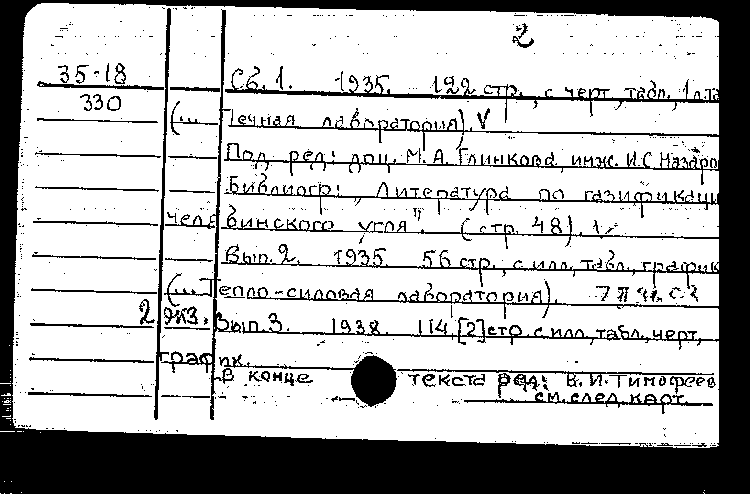 2
35-18 Сб. 1. 1935. 122 стр., с черт., табл., 1 л. та
330
(... Печная лаборатория). V
Под ред: доц. М. А. Глинкова, инж. И.С. Назаро
Библиогр: „Литература по газификаци
челябинского угля". (стр. 48).
Вып. 2. 1935. 56 стр., с илл., табл., график
(... Тепло-силовая лаборатория).
2 экз. Вып. 3. 1938. 114, [2] стр. с илл., табл., черт.,
график.
В конце текста ред: В. И. Тимофеев
см. след. карт.